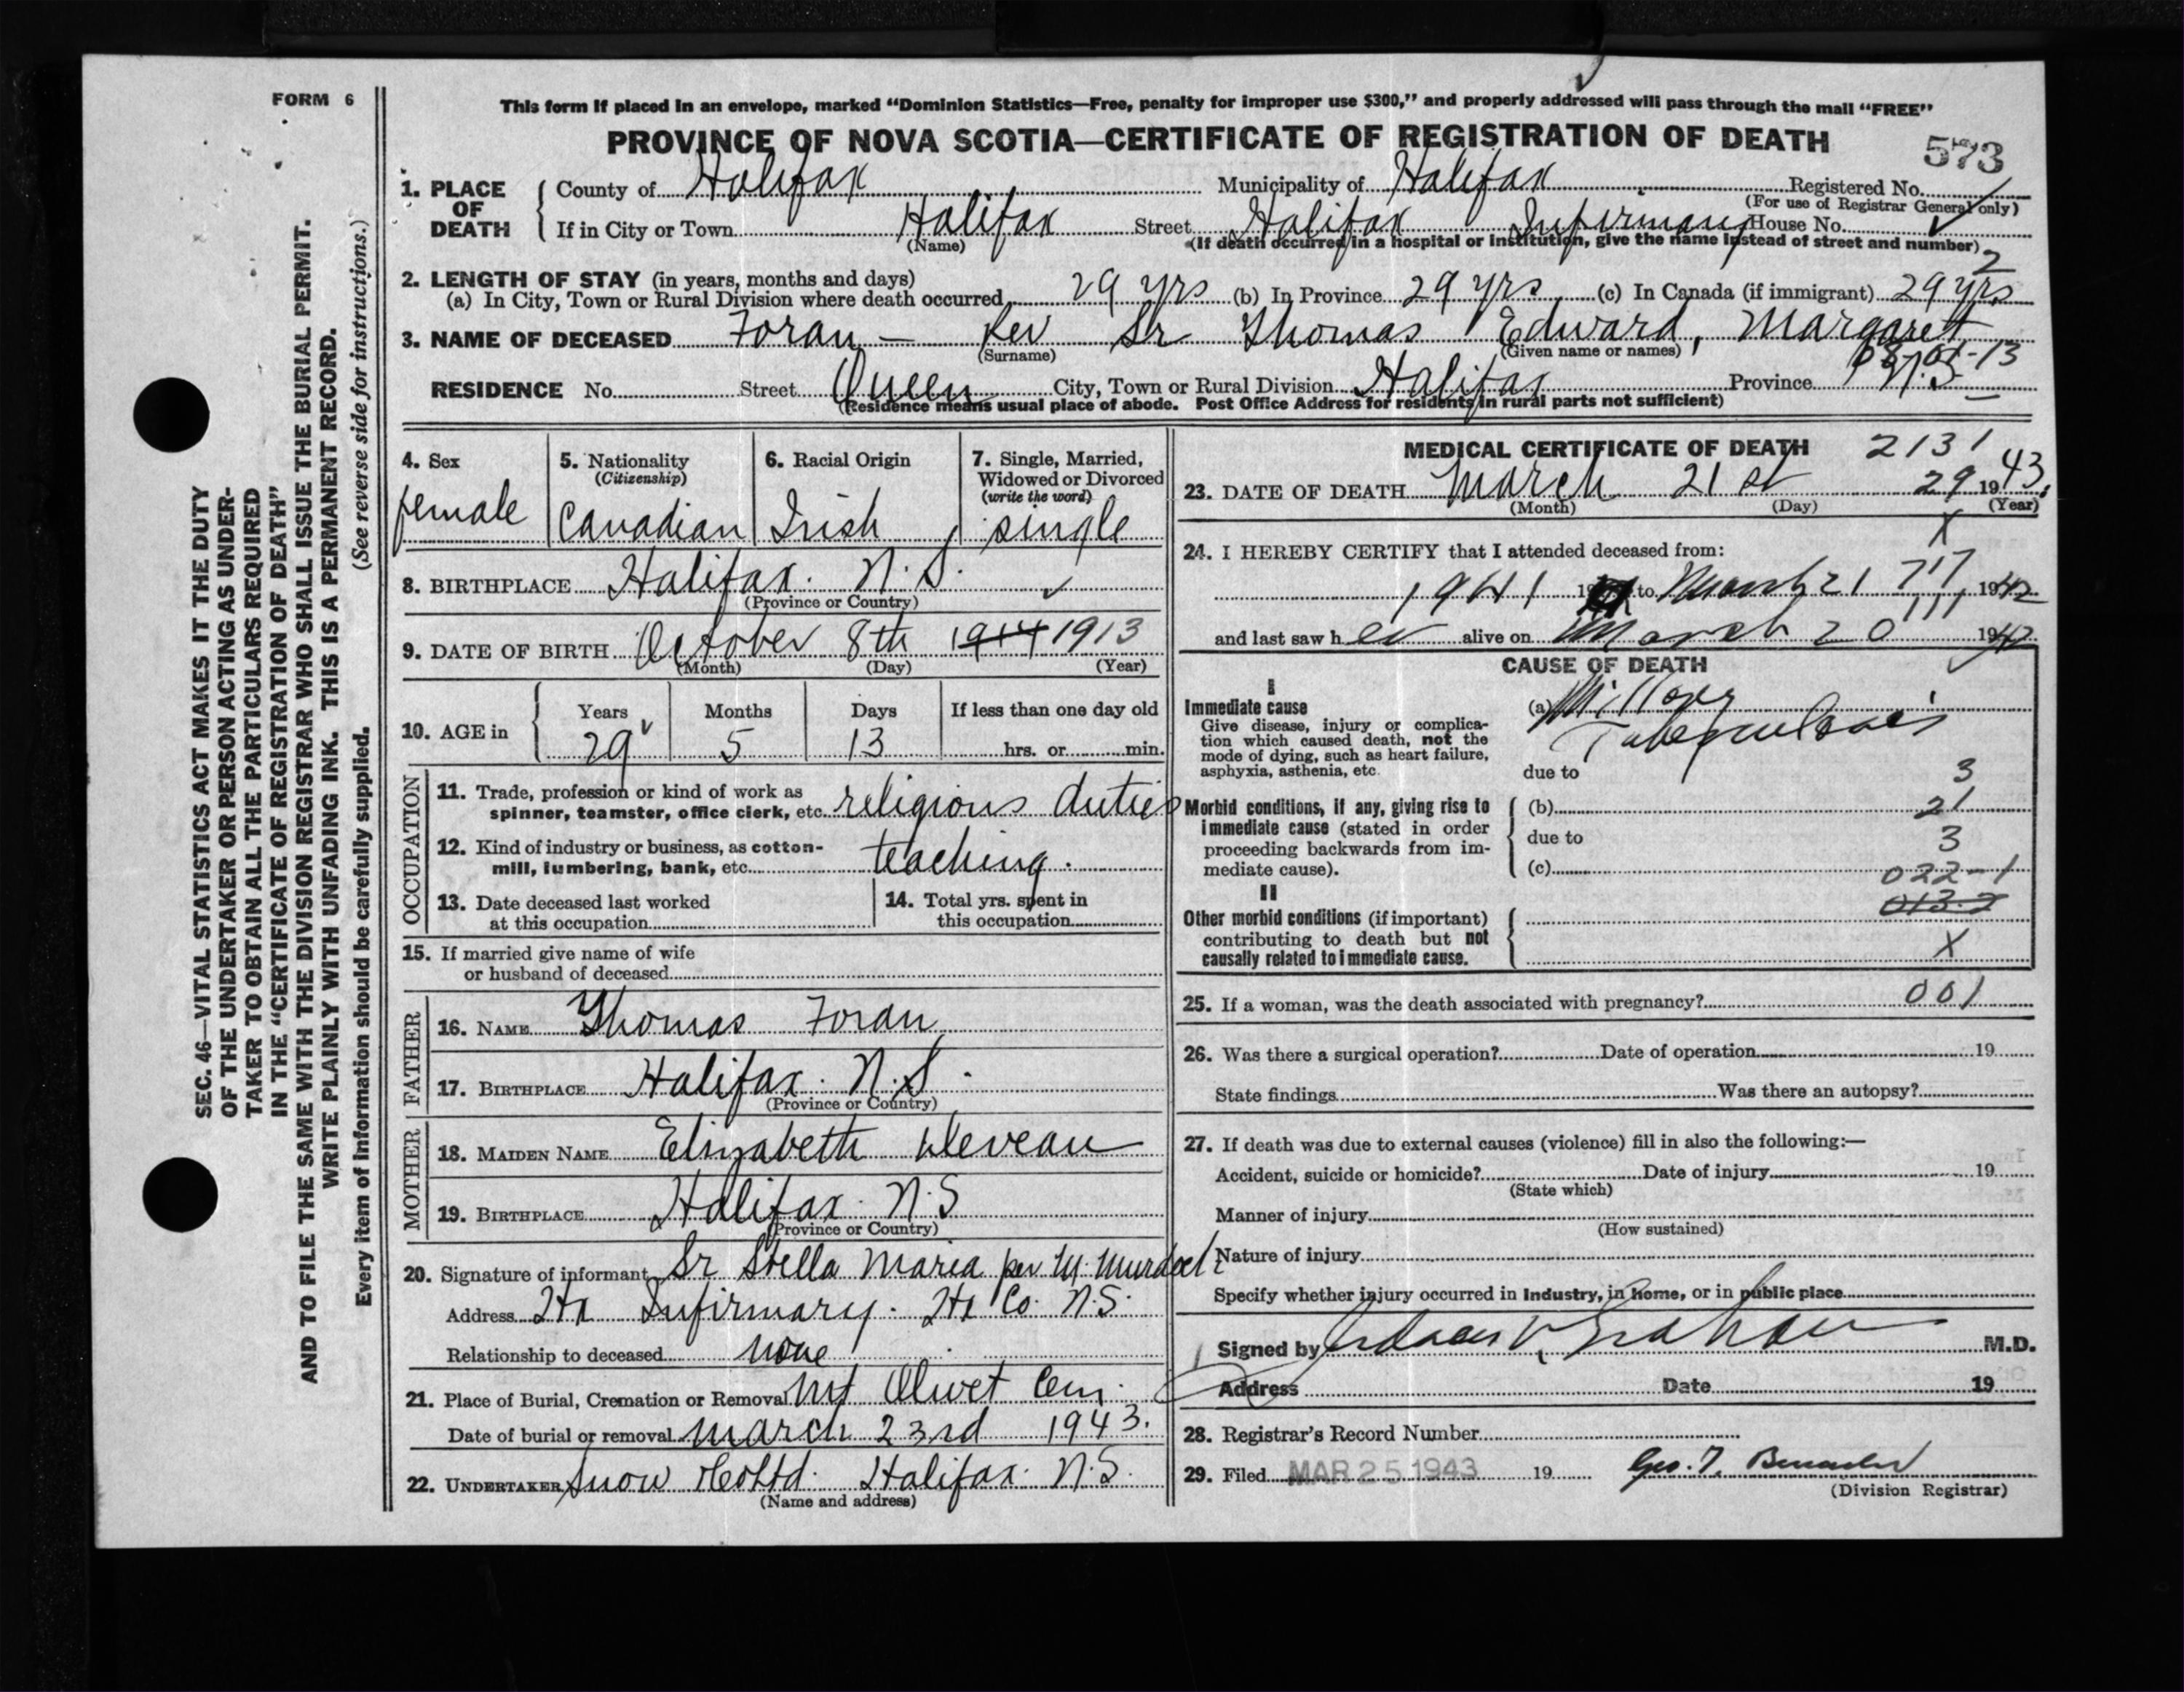 FORM 6
This form if placed in an envelope, marked “Dominion Statistics—Free, penalty for improper use $300,” and properly addressed will pass through the mail “FREE”
PROVINCE OF NOVA SCOTIA—CERTIFICATE OF REGISTRATION OF DEATH
573
1. PLACE OF DEATH County of Halifax Municipality of Halifax Registered No.
(For use of Registrar General only)
If in City or Town Halifax Street Halifax Infirmary House No.
(Name) (If death occurred in a hospital or institution, give the name instead of street and number)
2
2. LENGTH OF STAY (in years, months and days)
(a) In City, Town or Rural Division where death occurred 29 yrs (b) In Province 29 yrs (c) In Canada (if immigrant) 29 yrs
3. NAME OF DECEASED Foran — Rev Sr Thomas Edward, Margaret
(Surname) (Given name or names)
RESIDENCE No. Street Queen City, Town or Rural Division Halifax Province N.S
(Residence means usual place of abode. Post Office Address for residents in rural parts not sufficient)
4. Sex 5. Nationality (Citizenship) 6. Racial Origin 7. Single, Married, Widowed or Divorced (write the word)
female Canadian Irish single
8. BIRTHPLACE Halifax. N.S.
(Province or Country)
9. DATE OF BIRTH October 8th 1914 1913
(Month) (Day) (Year)
10. AGE in Years Months Days If less than one day old
29 5 13 hrs. or min.
OCCUPATION
11. Trade, profession or kind of work as
spinner, teamster, office clerk, etc. religious duties
12. Kind of industry or business, as cotton-
mill, lumbering, bank, etc. teaching.
13. Date deceased last worked
at this occupation
14. Total yrs. spent in
this occupation
15. If married give name of wife
or husband of deceased
FATHER
16. NAME Thomas Foran
17. BIRTHPLACE Halifax. N.S.
(Province or Country)
MOTHER
18. MAIDEN NAME Elizabeth Deveau
19. BIRTHPLACE Halifax. N.S
(Province or Country)
20. Signature of informant Sr Stella Maria per M. Murdoch
Address Hx Infirmary. Hx Co. N.S.
Relationship to deceased none
21. Place of Burial, Cremation or Removal Mt Olivet Cem.
Date of burial or removal March 23rd 1943.
22. UNDERTAKER Snow & Co Ltd. Halifax. N.S.
(Name and address)
MEDICAL CERTIFICATE OF DEATH 2131
23. DATE OF DEATH March 21st 29 1943.
(Month) (Day) (Year)
X
24. I HEREBY CERTIFY that I attended deceased from:
1941 19 to March 21 717 1942
111
and last saw her alive on March 20 1942
CAUSE OF DEATH
I
Immediate cause
Give disease, injury or complica-
tion which caused death, not the
mode of dying, such as heart failure,
asphyxia, asthenia, etc.
(a) Miliary
Tuberculosis
due to 3
Morbid conditions, if any, giving rise to
immediate cause (stated in order
proceeding backwards from im-
mediate cause).
(b) 21
due to 3
(c) 022-1
013-2
II
Other morbid conditions (if important)
contributing to death but not
causally related to immediate cause.
X
25. If a woman, was the death associated with pregnancy? 001
26. Was there a surgical operation? Date of operation 19
State findings Was there an autopsy?
27. If death was due to external causes (violence) fill in also the following:—
Accident, suicide or homicide? Date of injury 19
(State which)
Manner of injury
(How sustained)
Nature of injury
Specify whether injury occurred in Industry, in Home, or in public place
Signed by M.D.
Address Date 19
28. Registrar's Record Number
29. Filed MAR 25 1943 19 Geo. T.
(Division Registrar)
SEC. 46—VITAL STATISTICS ACT MAKES IT THE DUTY
OF THE UNDERTAKER OR PERSON ACTING AS UNDER-
TAKER TO OBTAIN ALL THE PARTICULARS REQUIRED
IN THE “CERTIFICATE OF REGISTRATION OF DEATH”
AND TO FILE THE SAME WITH THE DIVISION REGISTRAR WHO SHALL ISSUE THE BURIAL PERMIT.
WRITE PLAINLY WITH UNFADING INK. THIS IS A PERMANENT RECORD.
Every item of information should be carefully supplied. (See reverse side for instructions.)